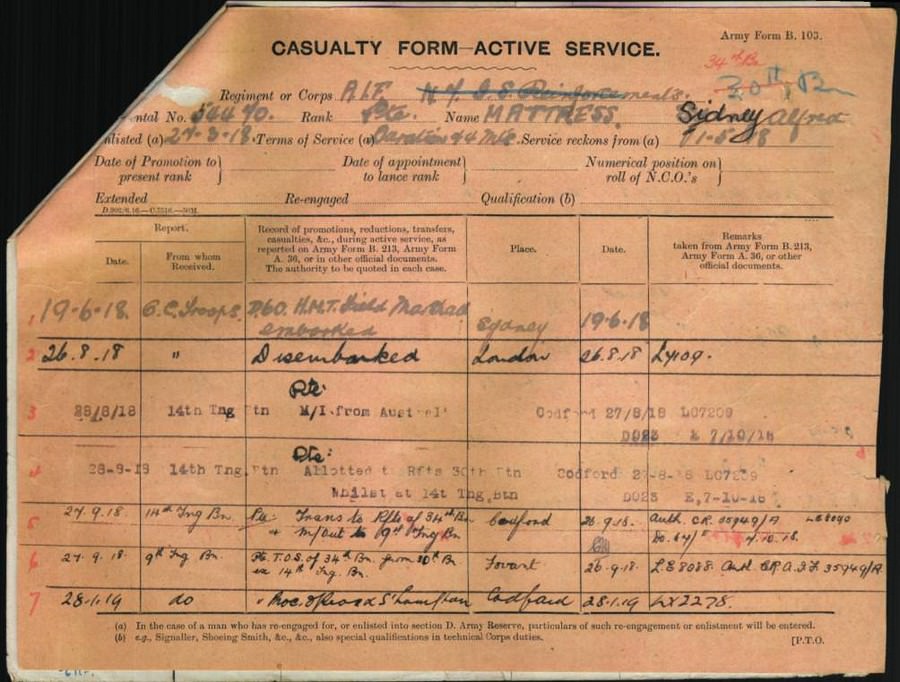 Army Form B. 103.
CASUALTY FORM—ACTIVE SERVICE.
34th Bn
30th Bn
Regiment or Corps A.I.F.
ntal No. 54470. Rank Pte. Name MATTRESS. Sidney Alfred
nlisted (a) 27-3-18. Terms of Service (a) Duration & 4 Mts. Service reckons from (a) 18
Date of Promotion to present rank } Date of appointment to lance rank } Numerical position on roll of N.C.O.'s }
Extended Re-engaged Qualification (b)
Report.
Date.
From whom Received.
Record of promotions, reductions, transfers,
casualties, &c., during active service, as
reported on Army Form B. 213, Army Form
A. 36, or in other official documents.
The authority to be quoted in each case.
Place.
Date.
Remarks
taken from Army Form B. 213,
Army Form A. 36, or other
official documents.
1 19-6-18. O.C. Troops. H.M.T. Field Marshal
embarked Sydney 19-6-18
2 26.8.18 " Disembarked London 26.8.18
Pte:
3 28/8/18 14th Tng Btn M/I from Austral Codford 27/8/18 LC7209
7/10/18
Pte:
4 28-8-18 14th Tng.Btn Allotted t Rfts 30th Btn Codford 27-8-18
Whilst at 14t Tng.Btn D023 E,7-10-18
5 27.9.18 14th Tng Bn Pte Trans to Rfts of 34th Bn Codford 26.9.18. Auth. C.R. 35949/A
+ m/out to 9th Tng Bn 4.10.18.
6 27.9.18. 9th Tng. Bn. Pte T.O.S. of 34th Bn. from 30th Bn Fovant 26.9.18. 35949/A
ex 14th Tng. Bn.
7 28.1.19 do Proc. o/seas S'hampton Codford 28.1.19
(a) In the case of a man who has re-engaged for, or enlisted into section D. Army Reserve, particulars of such re-engagement or enlistment will be entered.
(b) e.g., Signaller, Shoeing Smith, &c., &c., also special qualifications in technical Corps duties.
[P.T.O.